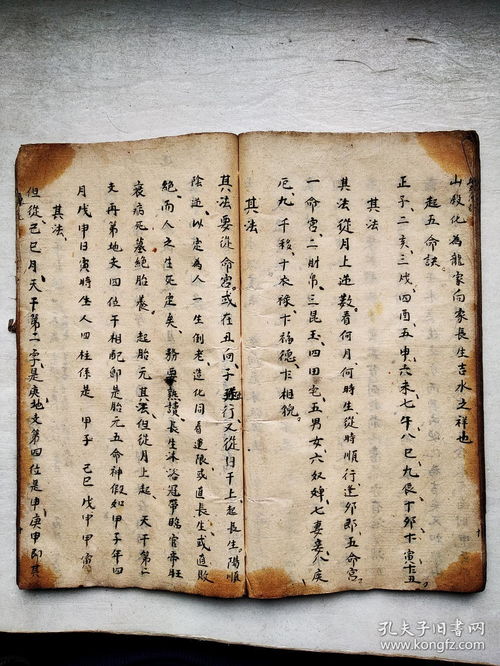 山殺化為龍家向家長生吉水之祥也
起五命訣
正子二亥三戌四酉五申六未七午八巳九辰十卯十寅十丑
其法
其法從月上逆數看何月何時生從時順行逢卯即五命宮
一命宮二財帛三昆玉四田宅五男女六奴婢七妻妾八疾
厄九千移十衣祿十福德十相貌
其法
其法要從命宮或在丑向子行又從日干上起長生陽順
陰逆以定為人一生到老造化同看運限或值長生或值敗
絕而人之生死定矣務要熟讀長生沐浴冠帶臨官帝旺
衰病死墓絕胎養 起胎元其法但從月上起 天干第二
支再第地支四位干相配即是胎元五命神假如甲子年四
月戊甲日寅時生人四柱係是 甲子 己巳 戊甲 甲寅
其法
但從己巳月天干第二字是庚地支第四位是申庚申即其
孔夫子旧书网
www.kongfz.com